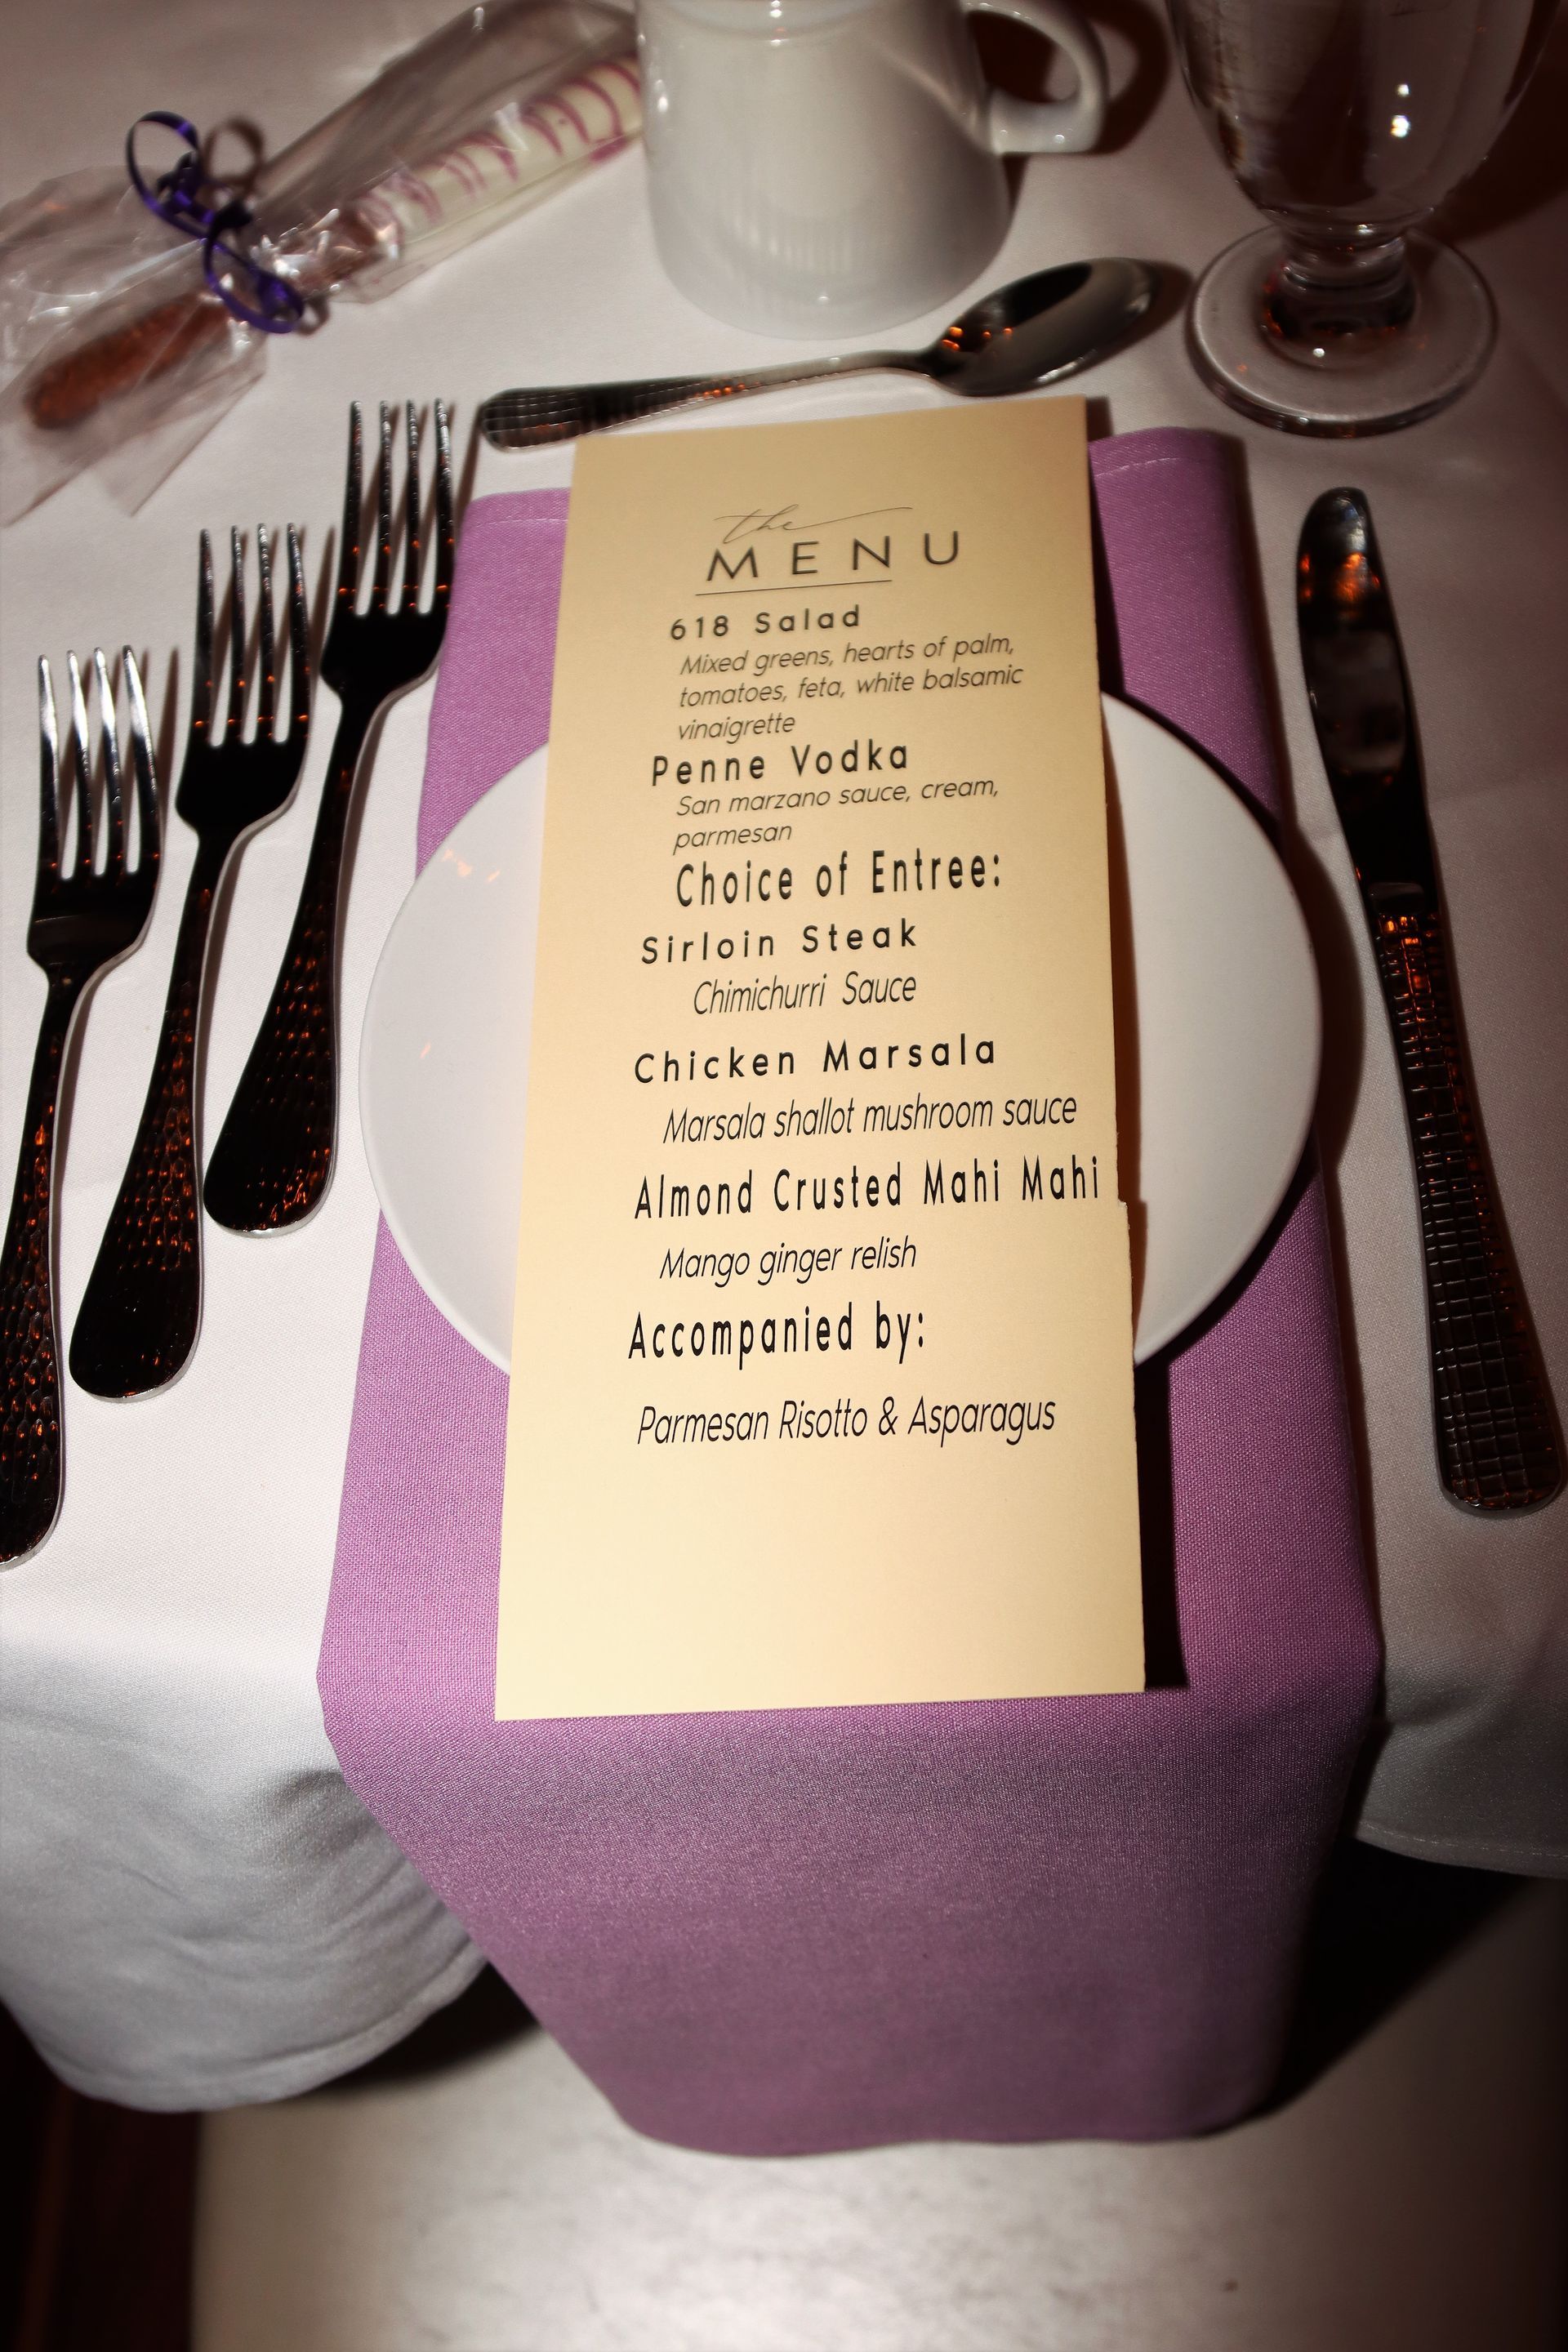 the
MENU
618 Salad
Mixed greens, hearts of palm,
tomatoes, feta, white balsamic
vinaigrette
Penne Vodka
San marzano sauce, cream,
parmesan
Choice of Entree:
Sirloin Steak
Chimichurri Sauce
Chicken Marsala
Marsala shallot mushroom sauce
Almond Crusted Mahi Mahi
Mango ginger relish
Accompanied by:
Parmesan Risotto & Asparagus